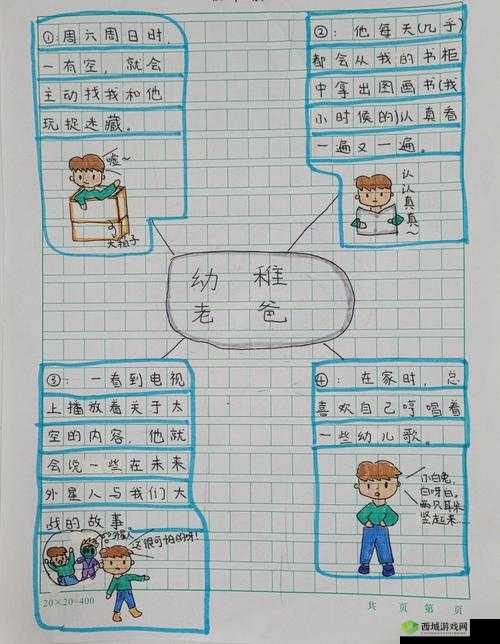 ①:周六周日时,
一有空,就会
主动找我和他
玩捉迷藏。
嘘~
大箱子
②:他每天(几乎)
都会从我的书柜
中拿出图画书(我
小时候的)认真看
一遍又一遍。
认认真真~
幼稚
老爸
③:一看到电视
上播放着关于太
空的内容,他就
会说一些在未来
外星人与我们大
战的故事。
外星人
这很可怕的呀!
④:在家时,总
喜欢自己哼唱着
一些幼儿歌。
小白兔,
白呀白,
两只耳朵
竖起来……
20×20=400
共 页 第 页
西城游戏网